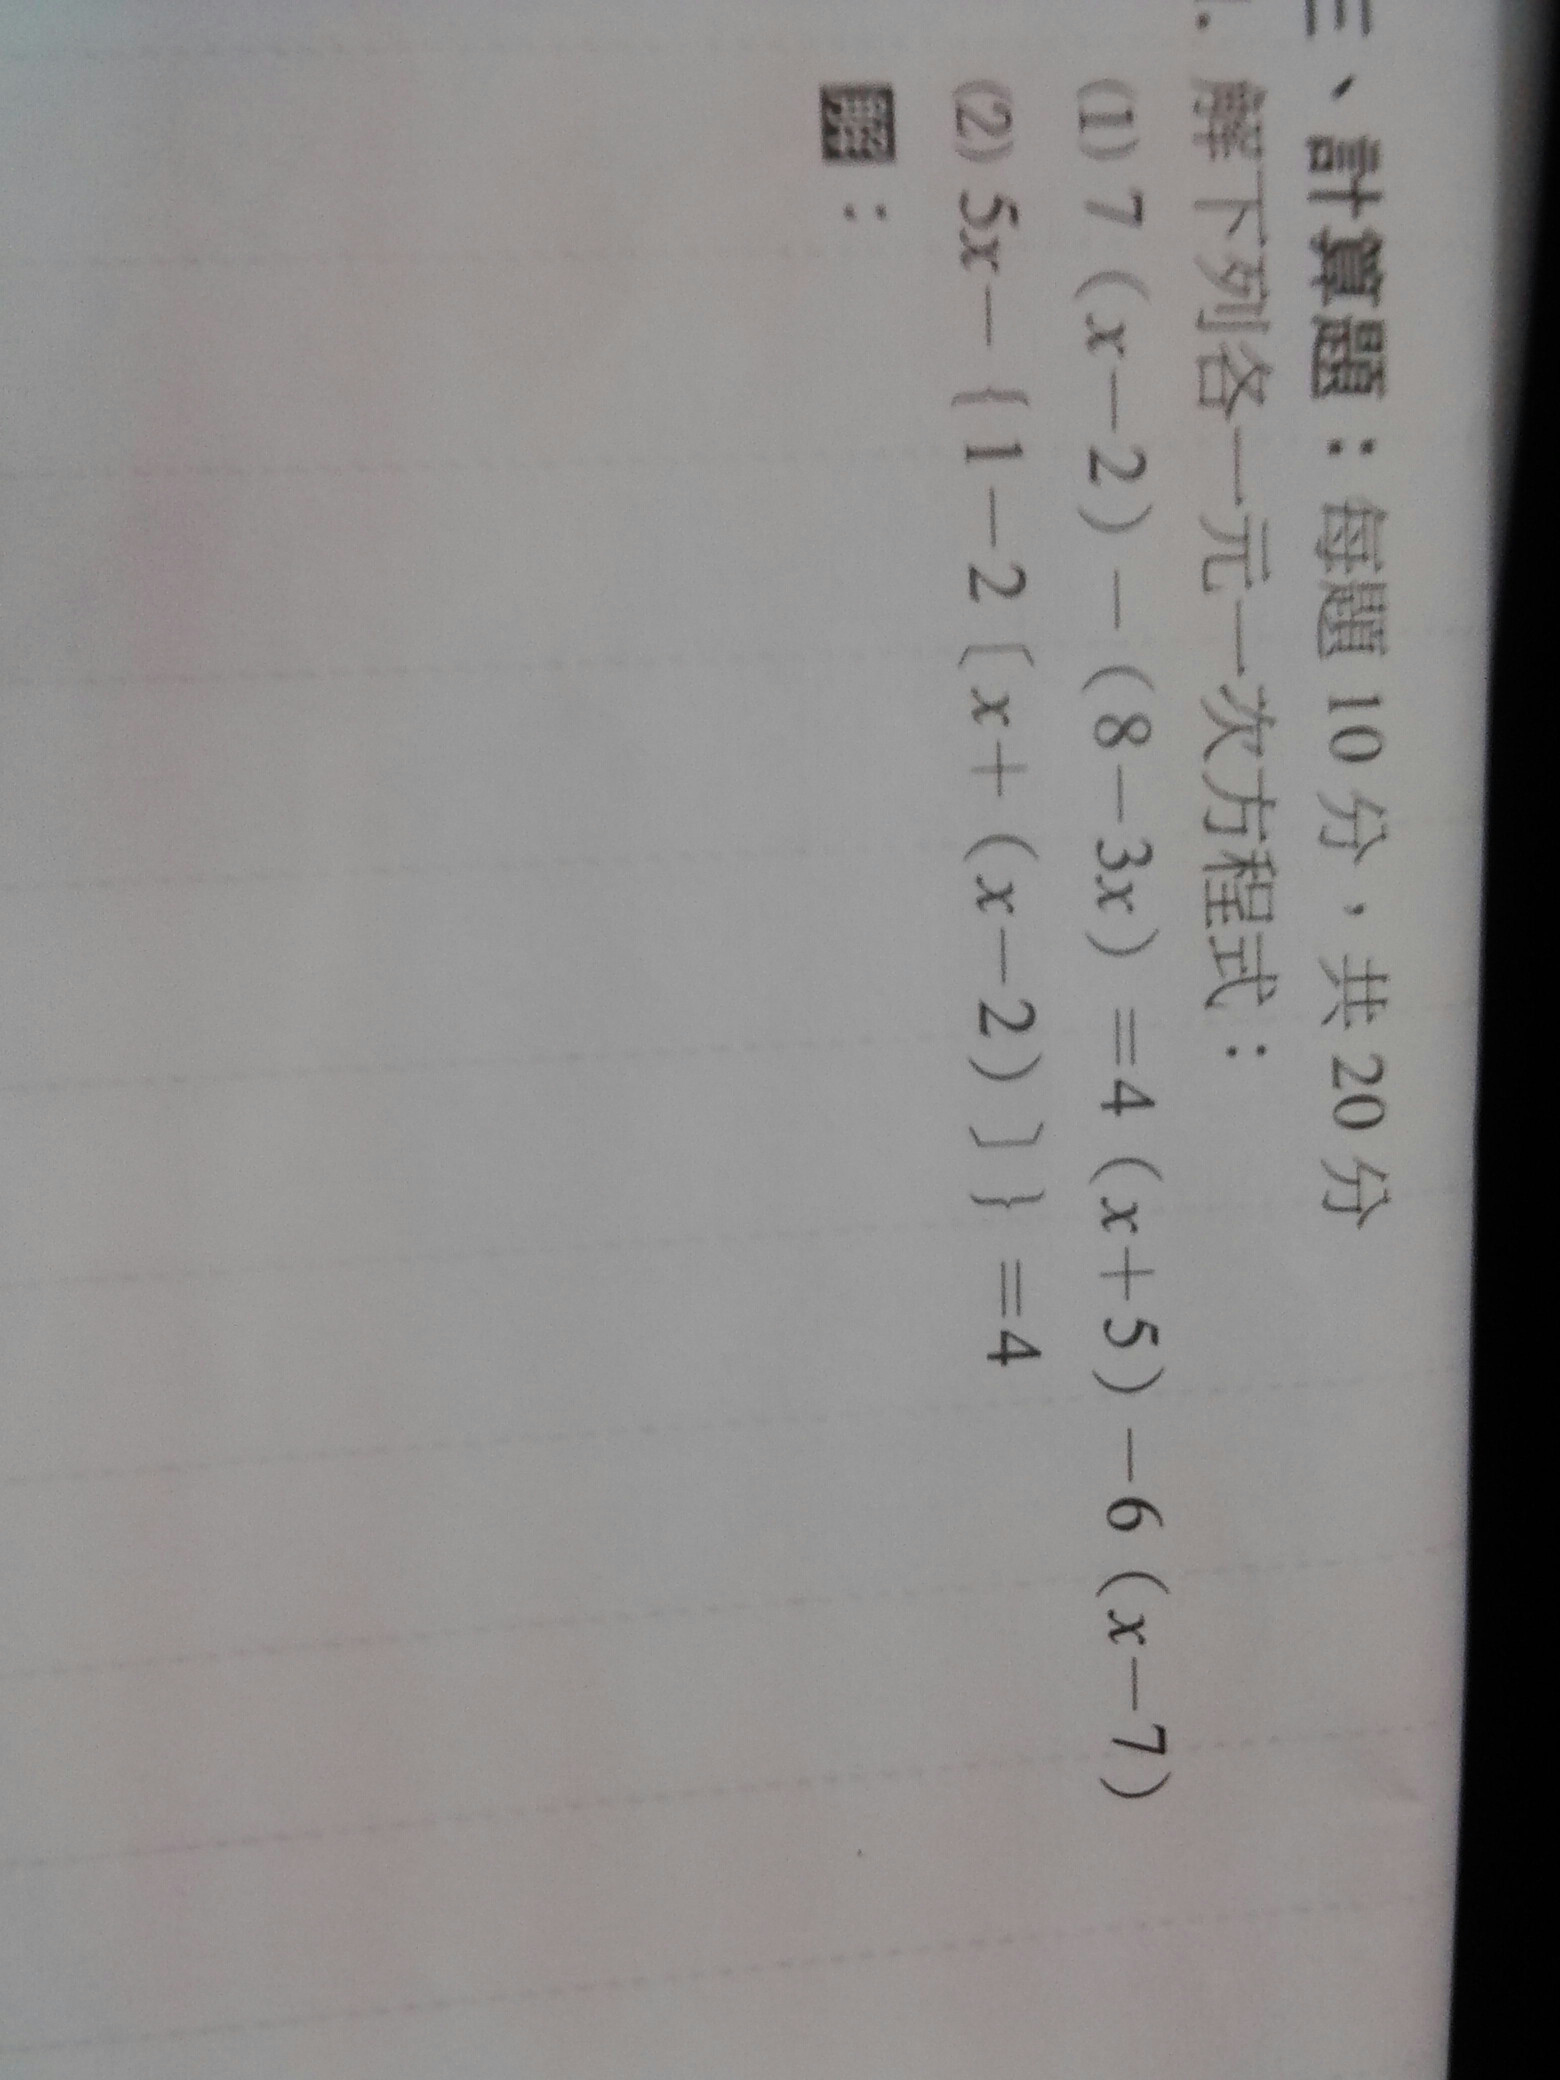 三、計算題：每題 10 分，共 20 分
1. 解下列各一元一次方程式：
(1) 7（x－2）－（8－3x）＝4（x＋5）－6（x－7）
(2) 5x－｛1－2〔x＋（x－2）〕｝＝4
解：